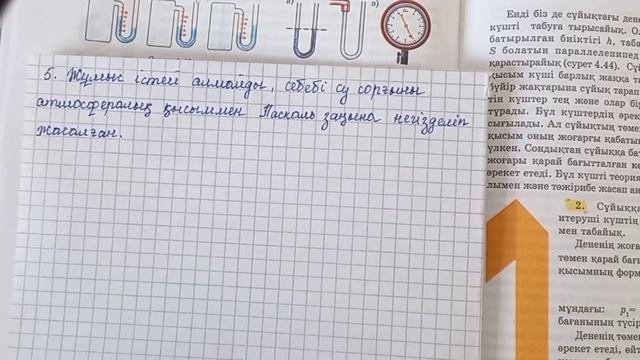 5. Жұмыс істей алмайды, себебі су сорғыны
атмосфералық қысыммен Паскаль заңына негізделіп
жасалған.
Енді біз де сұйықтағы
күшті табуға тырысайық.
батырылған биіктігі h,
S болатын параллелепипед
қарастырайық (сурет 4.44).
қысым күші барлық жаққа
бүйір жақтарына сұйық тарап
тін күштер тең және олар бір
тұрады. Бұл күштердің
сығылады. Ал сұйықтың
қысым оның жоғарғы
үлкен. Сондықтан сұйыққа
жоғары қарай бағытталған
әрекет етеді. Бұл күшті
лымен және тәжірибе жасап
2.
итеруші күштің
мен табайық.
Дененің
төмен қарай
қысымның
мұндағы: p₁=
бағанының
Дененің
әрекет етеді,
1